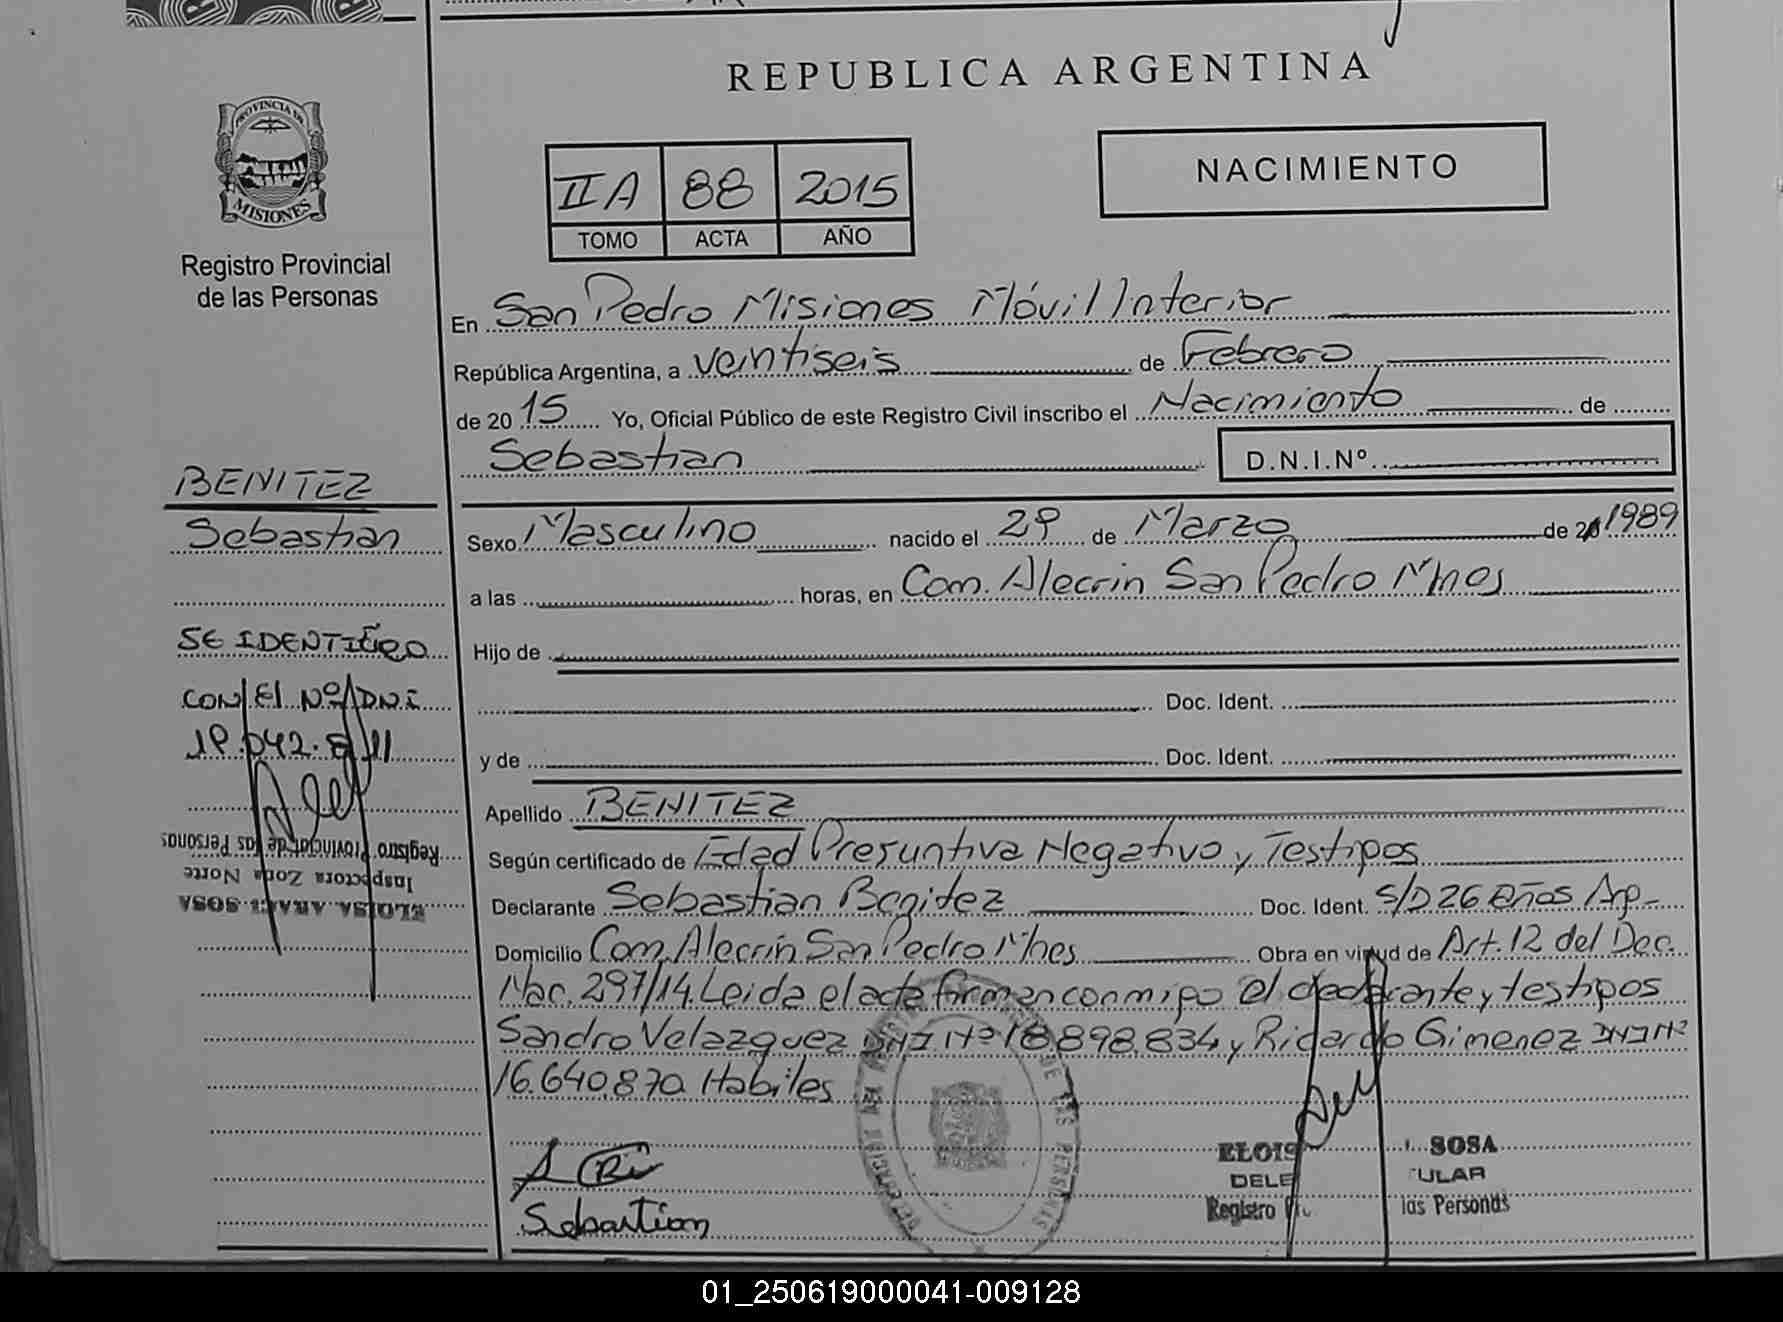 REPUBLICA ARGENTINA
PROVINCIA DE
MISIONES
Registro Provincial
de las Personas
NACIMIENTO
II A 88 2015
TOMO ACTA AÑO
En San Pedro Misiones Móvil Interior
República Argentina, a veintiseis de Febrero
de 20 15 Yo, Oficial Público de este Registro Civil inscribo el Nacimiento de
Sebastian D.N.I.Nº
BENITEZ
Sebastian
Sexo Masculino nacido el 29 de Marzo de 20 1989
a las horas, en Com. Alecrin San Pedro Mnes
Hijo de
Doc. Ident.
y de Doc. Ident.
SE IDENTIFICO
CON El Nº DNI
19.042.811
Apellido BENITEZ
Según certificado de Edad Presuntiva Negativo y Testigos
Declarante Sebastian Benitez Doc. Ident. S/D 26 Años Arg-
Domicilio Com. Alecrin San Pedro Mnes Obra en virtud de Art. 12 del Dec.
Nac. 297/14. Leida el acta firman conmigo el declarante y testigos
Sandro Velazquez DNI Nº 18.898.834 y Ricardo Gimenez DNI Nº
16.640.870 Habiles
ELOISA ARACI SOSA
Inspectora Zona Norte
Registro Provincial de las Personas
Sebastian
ELOIS SOSA
DELE ULAR
Registro las Personas
01_250619000041-009128